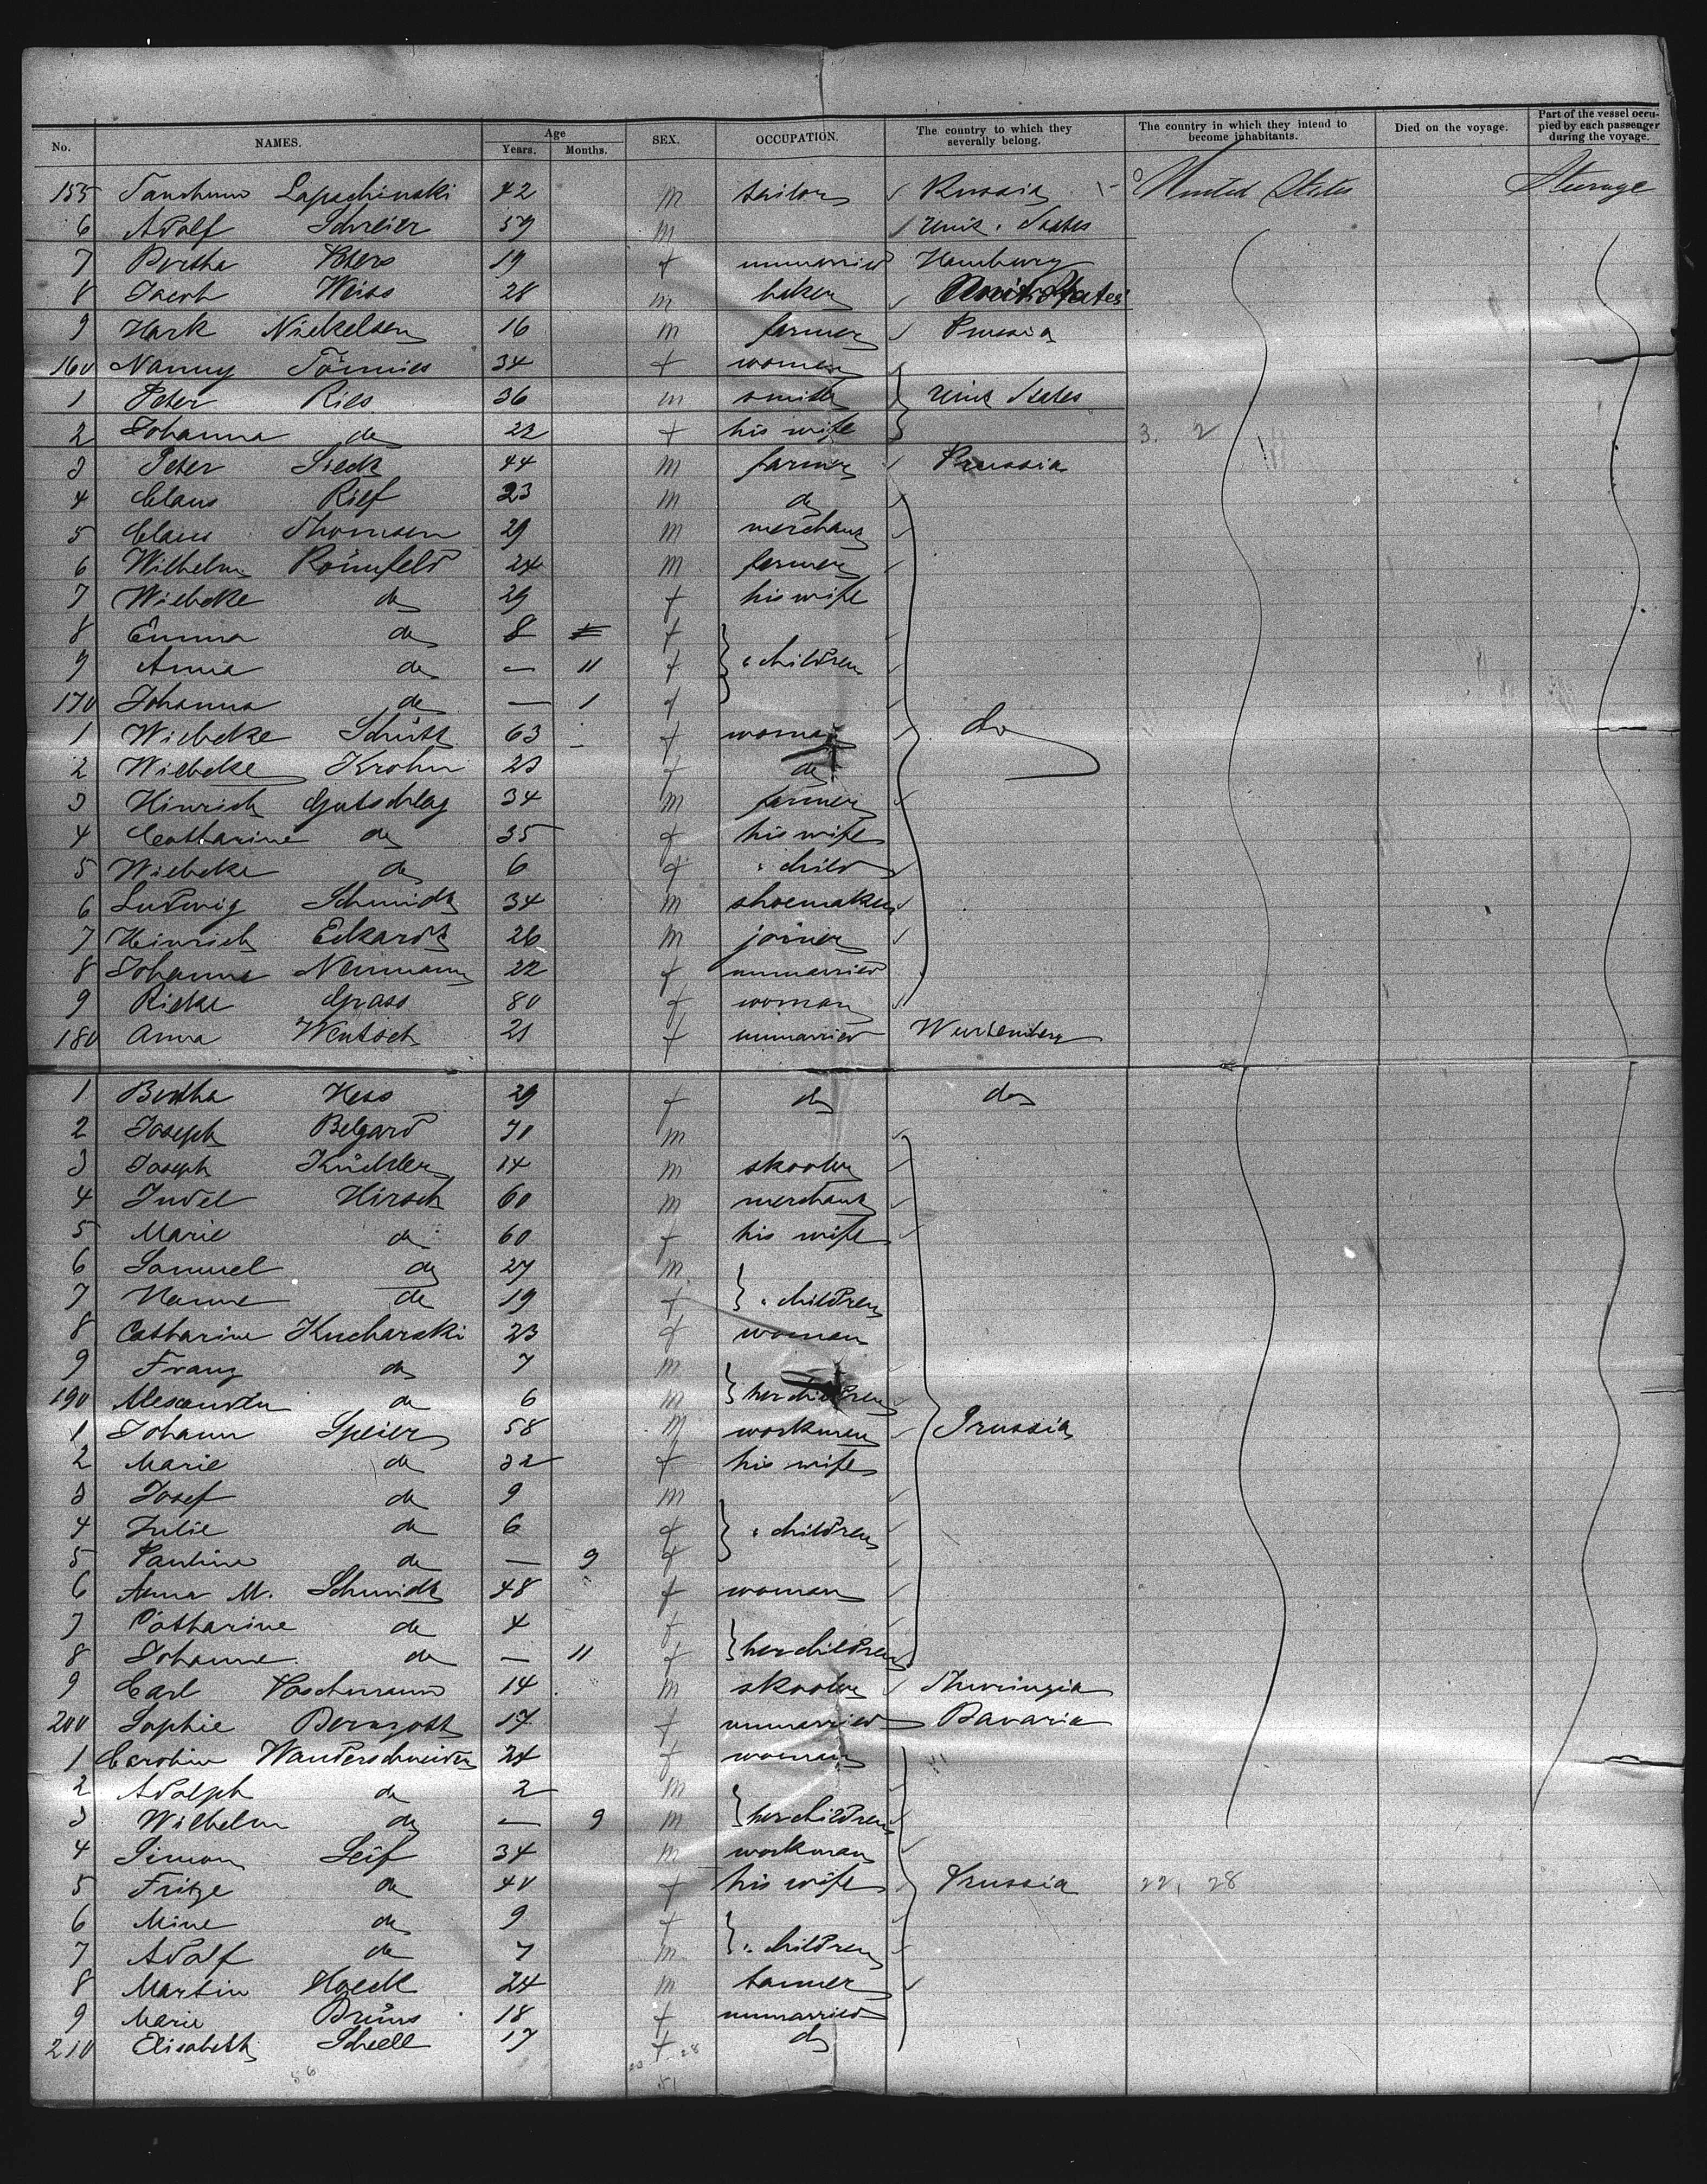 No. NAMES. Age Years. Months. SEX. OCCUPATION. The country to which they severally belong. The country in which they intend to become inhabitants. Died on the voyage. Part of the vessel occupied by each passenger during the voyage.
155 Lapschinski 42 m tailor Russia United States Steerage
6 Adolf Schreier 59 m Unit. States
7 Bertha Peters 19 f unmarried Hamburg
8 Jacob Weiss 28 m baker Unit. States
9 Hark Nickelsen 16 m farmer Prussia
160 Nanny Tönnies 34 f woman
1 Peter Ries 36 m smith Unit States
2 Johanna do 22 f his wife 3. 2
3 Peter Sieck 44 m farmer Prussia
4 Claus Rief 23 m do
5 Claus Thomsen 29 m merchant
6 Wilhelm Römfeld 24 m farmer
7 Wiebcke do 29 f his wife
8 Emma do 8 f
9 Anna do — 11 f " children
170 Johanna do — 1 f
1 Wiebcke Schütt 63 f woman do
2 Wiebcke Krohn 23 f do
3 Hinrich Gutschlag 34 m farmer
4 Catharine do 35 f his wife
5 Wiebcke do 6 f " child
6 Ludwig Schmidt 34 m shoemaker
7 Heinrich Eckardt 26 m joiner
8 Johanna Neumann 22 f unmarried
9 Rieke Grass 80 f woman
180 Anna Wentsch 21 f unmarried Wurtemberg
1 Bertha Hess 29 f do do
2 Joseph Belgard m
3 Joseph Küchler 14 m skoolar
4 Judel Hirsch 60 m merchant
5 Marie do 60 f his wife
6 Samuel do 27 m
7 Hanne do 19 f " children
8 Catharine Kucharski 23 f woman
9 Franz do 7 m
190 Alexander do 6 m her children
1 Johann Speier 58 m workman Prussia
2 Marie do 32 f his wife
3 Josef do 9 m
4 Julie do 6 f " children
5 Pauline do — 9 f
6 Anna M. Schmidt 48 f woman
7 Catharine do 4 f
8 Johanne do — 11 f her children
9 Carl 14 m skoolar Thuringia
200 Sophie 17 f unmarried Bavaria
1 Carolin Wanderschneider 24 f woman
2 Adolph do 2 m
3 Wilhelm do — 9 m her children
4 Simon Seif 34 m workman
5 Fritze do 40 f his wife Prussia 22, 28
6 Mine do 9 f
7 Adolf do 7 m " children
8 Martin Hoeck 24 m tanner
9 Marie Brüns 18 f unmarried
210 Elisabeth Scheel 17 f do
56